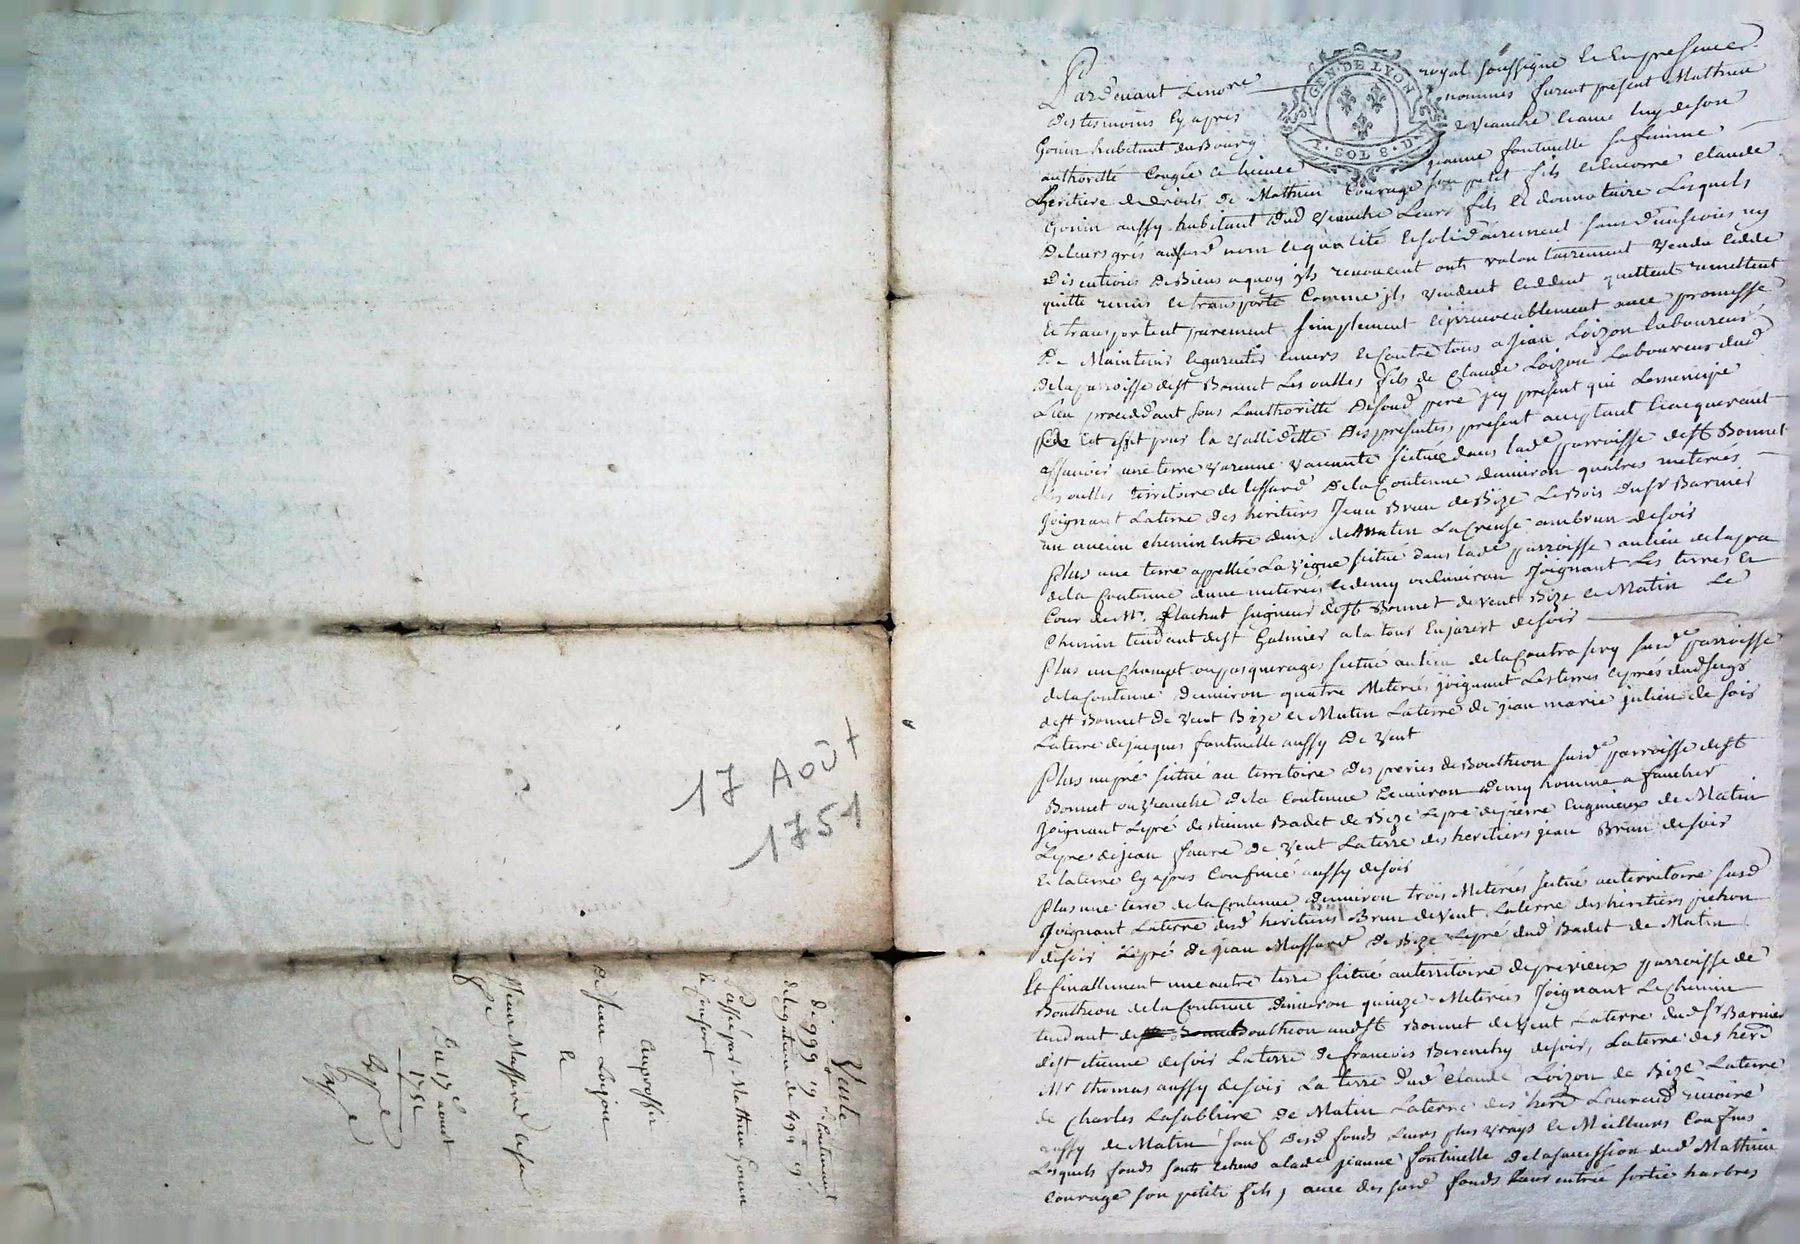 17 AOÛT
1751
Vente
de 999 lt 19 s Contenant
delegation de 494 lt 19 s
Passée par Mathieu Gonin
et Consort
au proffit
de Jean Loizon
Sieur Massard
Du 17e aoust
1751
GEN. DE LYON
1. SOL 8. D.
Pardevant Lenore royal soussigné et en presence
des tesmoins cy apres nommés furent present Mathieu
Gonin habitant du Bourg de Veauche et avec luy de son
authorité Congée et licence jeanne fontenelle sa femme
heritiere de droits de Mathieu Courage son petit fils et encorre Claude
Gonin aussy habitant dud Veauche Leurs fils et donnataire Lesquels
De leurs grés ausurd nom et qualité et solidairement sans division ny
Discutions De Biens a quoy ils renoncent onts volontairement Vendu cédde
quitte remis et transporté Comme ils Vendent ceddent quittent remettent
et transportent purement simplement et irrevocablement avec promesse
De Maintenir et garentir envers et contre tous a jean Loizon laboureur
De la parroisse de st Bonnet Les oulles fils de Claude Loizon Laboureur dud
Lieu proceddant sous Lauthoritté De sond pere icy present qui Lemencipe
pour cet effet pour la Vallidité Des presentes, present acceptant et acquereant
assavoir une terre Varenne Vacante scituée dans lade parroisse de st Bonnet
Les oulles territoire de lessard De la Contenue denviron quatres meterées
joignant La terre des heritiers Jean Brun de Bize Le Bois du sr Barnier
un ancien chemin entre deux de Matin La Creuse ambrun de soir
Plus une terre appellée La Vigne scitué dans lade parroisse au lieu de la pra
de la Contenue dune meterée et demy ou environ Joignant Les terres et
Cour de Mr. flachat seigneur de st Bonnet de Vent Bize et Matin Le
Chemin tendant de st Galmier a la tour Enjarert de soir
Plus un Champt ou pasquerages scitué au lieu de la Contrasery surde parroisse
de la Contenue denviron quatre Meterées joignant Les terres et prés dud seigr
de st Bonnet De Vent Bize et Matin La terre de jean marie julien de soir
La terre de jacques fontenelle aussy De Vent
Plus un pré scitué au territoire Des preries de Bouthéon surde parroisse de st
Bonnet ou Veauche De la Contenue Denviron Demy homme a faucher
Joignant Le pré destienne Badet de Bize Le pré de pierre Eugnieux de Matin
Le pré de jean faure De Vent La terre des heritiers jean Brun de soir
Et la terre cy apres Confinée aussy de soir
Plus une terre de la Contenue denviron trois Meterées scitué au territoire susd
Joignant La terre desd heritiers Brun de Vent La terre des heritiers pichon
de soir Le pré De jean Massard De Bize Le pré dud Badet de Matin
Et finallement une autre terre scitué au territoire de previeux parroisse de
Bouthéon de la Contenue denviron quinze Meterées Joignant Le Chemin
tendant de Bouthéon aud st Bonnet de Vent La terre dud sr Barnier
de st etienne de soir La terre De francois Berenchy de soir, La terre des herd
Mr thomas aussy de soir La terre dud Claude Loizon de Bize La terre
de Charles Lasabliere De Matin La terre des herd Laurend
aussy de Matin sauf desd fonds Leurs plus Vrays et Meilleurs Confins
Lesquels fonds sont echeus a lade jeanne fontenelle De la succession dud Mathieu
Courage son petit fils, avec des surd fonds Leurs entrée sortie harbres